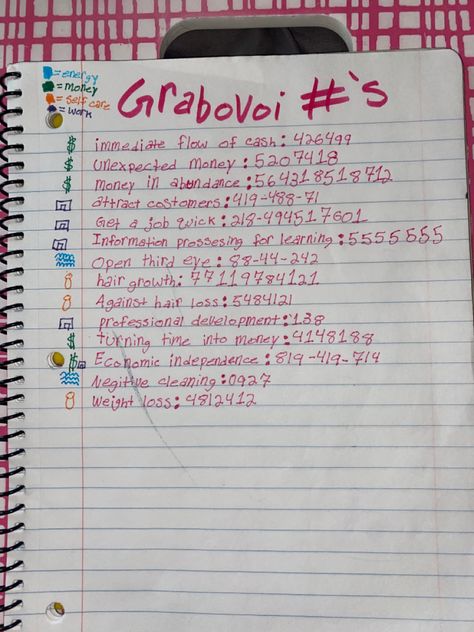 = energy
= money
= self care
= work
Grabovoi #`s
immediate flow of cash: 426499
Unexpected money: 5207418
money in abundance: 564318518712
attract costomers: 419-488-71
Get a job quick: 218-494517601
Information prossesing for learning: 5555555
Open third eye: 88-44-242
hair growth: 77119784121
Against hair loss: 5484121
professional development: 138
turning time into money: 4148188
Economic independence: 819-419-714
Negitive cleaning: 0927
Weight loss: 4812412